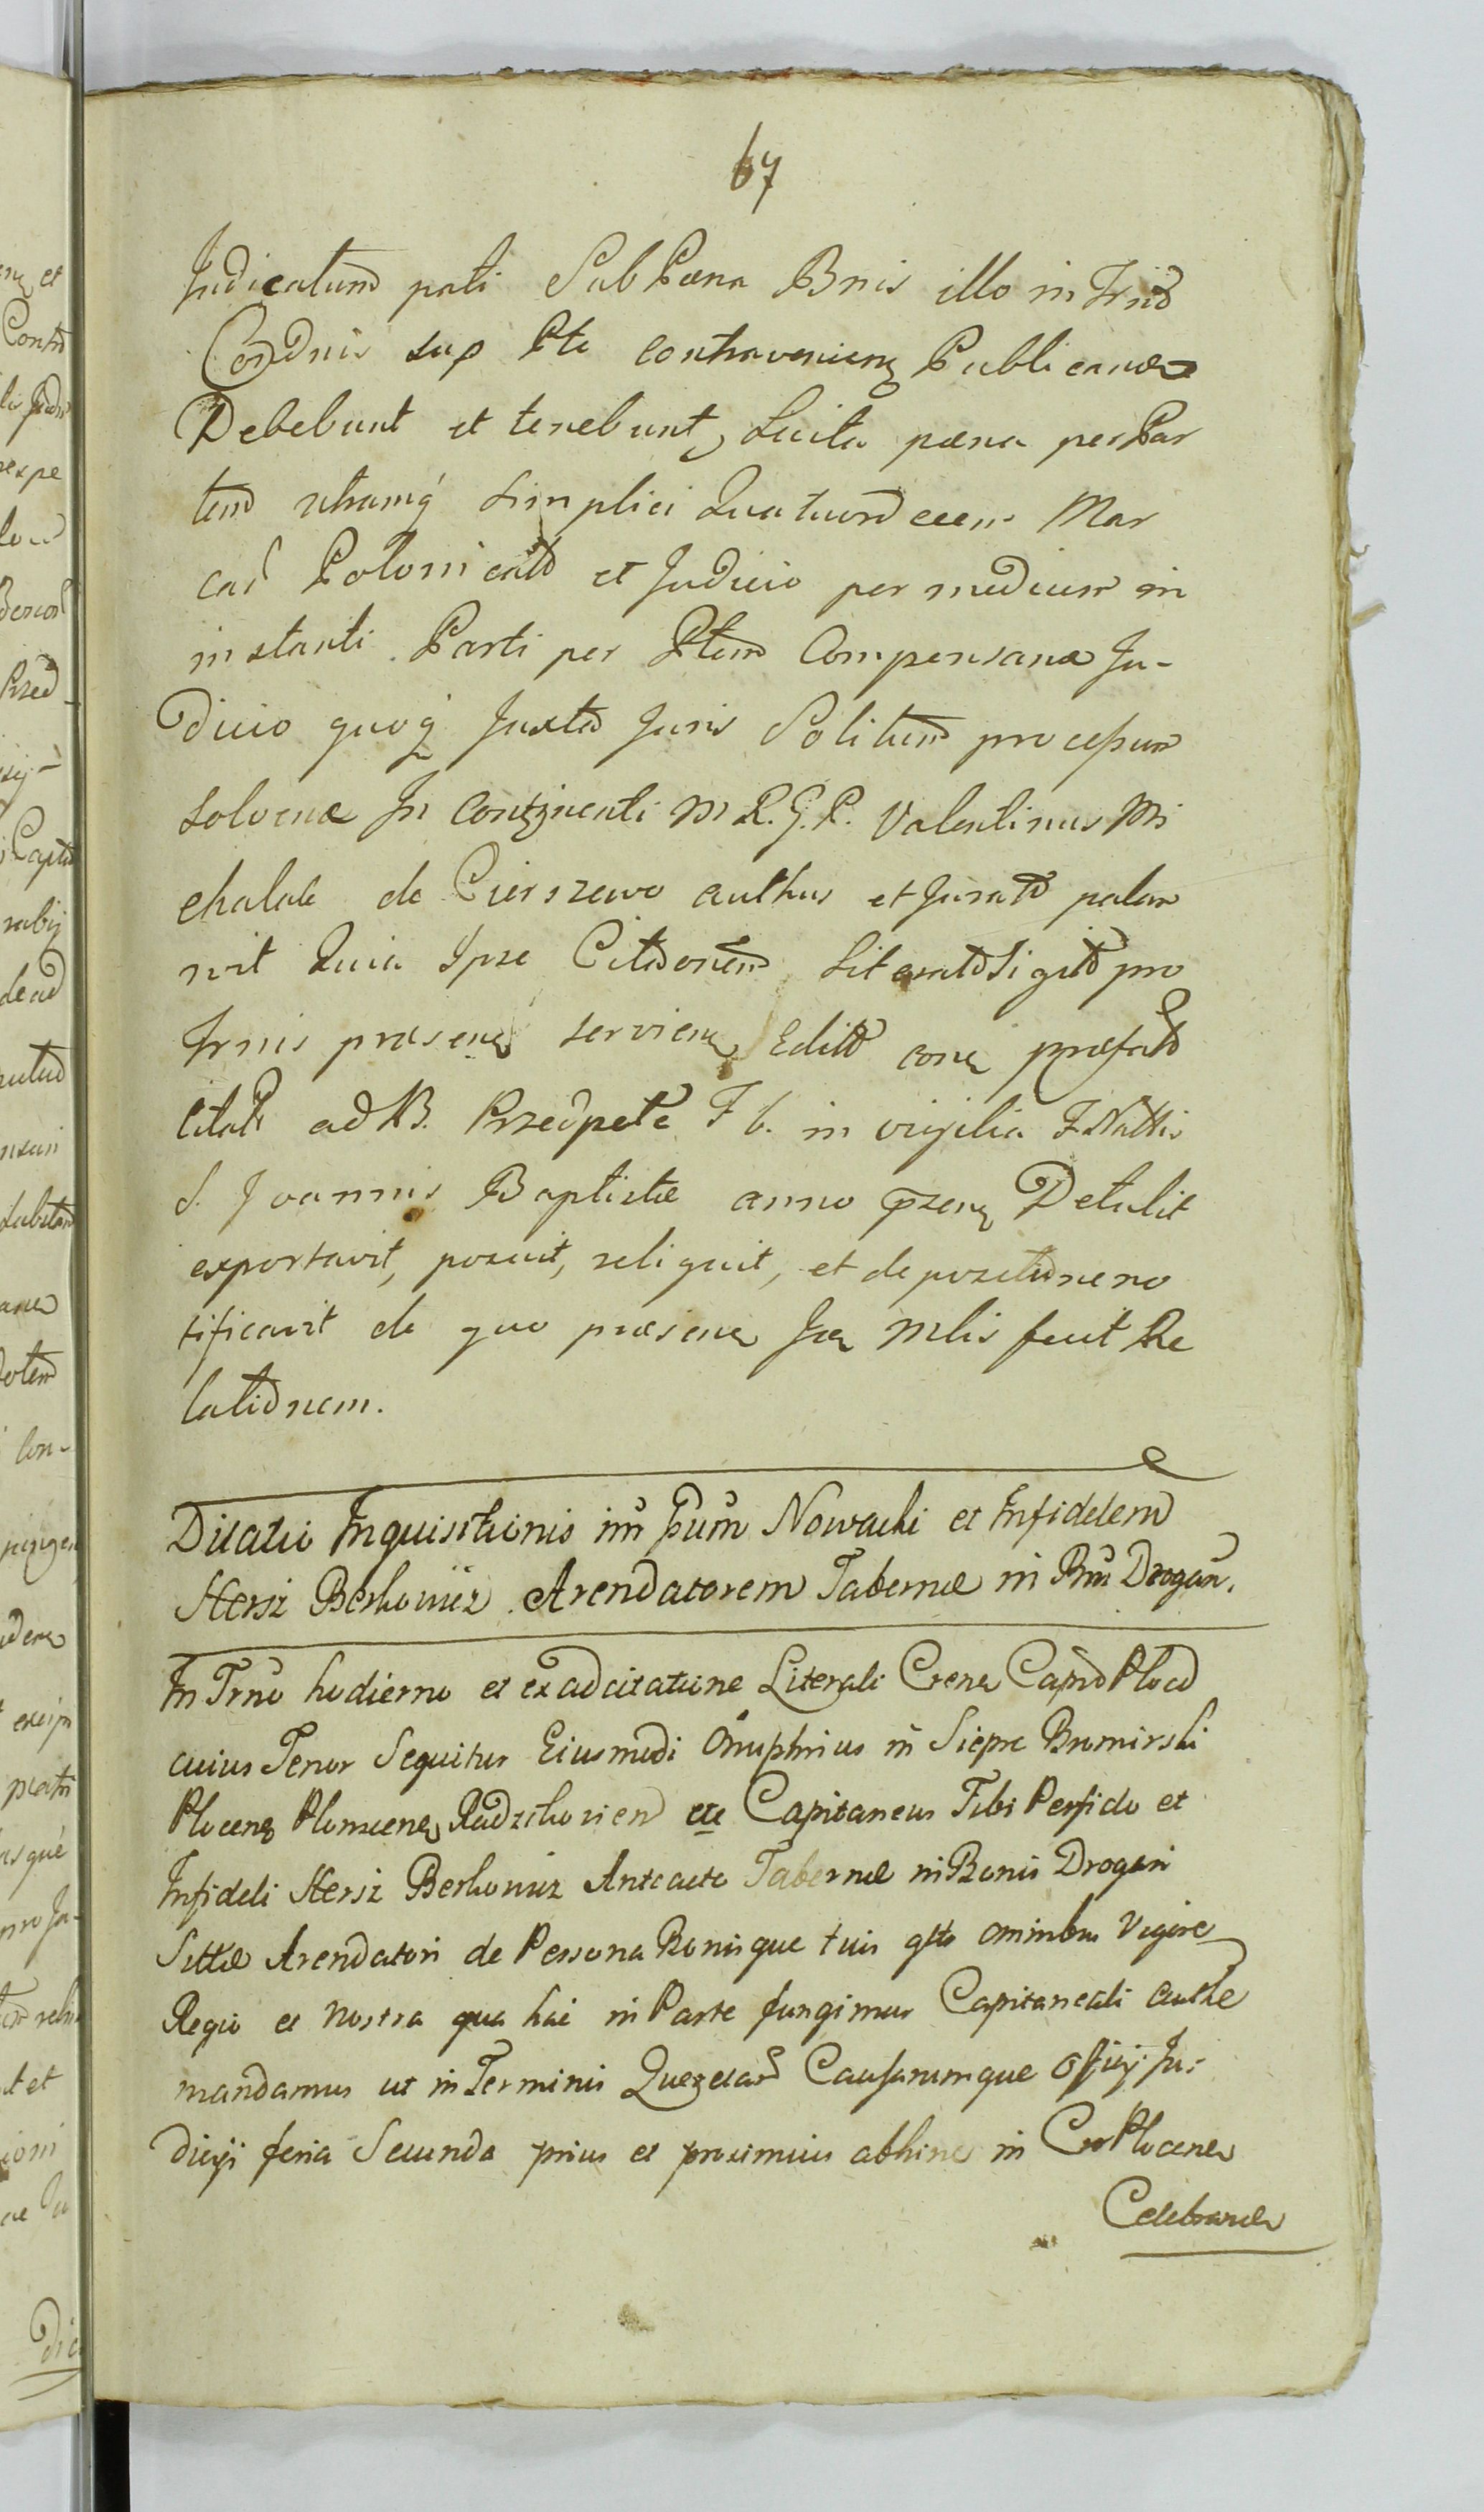 67
Judicatum pati Sub Pæna Bnis illo in Trnô
Condnis sup Pte contravenien Publicanda
Debebunt et tenebunt, Luita pæna per Par
tem utramq simplici Quatuordecem Mar
car Polonicald et Judicio per medium in
instanti Parti per Ptem Compensanda Ju-
dicio quoq Juxta Juris Solitum processum
Solvenda In Continenti M R. G. R. Valentinus Mi
chalak de Cierszewo authus et Juratd palam
vit Quia Ipse Citaonem Literatd Sigitd pro
Trnis præsen servien Editd con præfatd
Citatd ad B. Przedpełce F b. in vigilia F. Nattis
S. Joannis Baptistæ anno przen Detulit
exportavit, posuit, reliquit, et de positione no
tificavit de quo præsen Jæ Mlis fecit Re
lationem.
Dilatio Inquisitionis int Nowacki et Infidelem
Hersz Berkowicz Arendatorem Tabernæ in Bnis Drogan.
In Trno hodierno et ex adcitatione Literali Cren Capnô Plocô
cuius Tenor Sequitur Eiusmodi Onuphrius in Siepre Bromirski
Plocen Plonscen Radzikovien etc Capitaneus Tibi Perfido et
Infideli Hersz Berkowicz Anteacto Tabernæ in Bonis Drogan
Sittæ Arendatori de Persona Bonisque tuis gtto omnibus Vigore
Regio et nostra qua hac in Parte fungimur Capitaneali authe
mandamus ut in Terminis Querelard Causarumque Officij Ju-
dicij feria Secunda prius et proximius abhinc in Cro Plocen
Celebranda